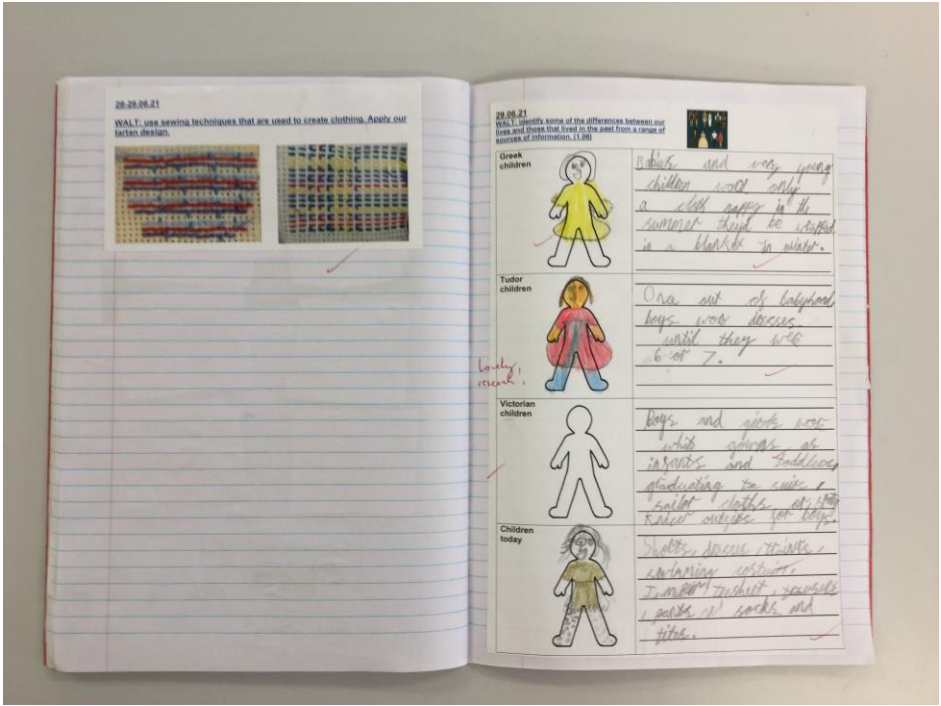 28-29.06.21
WALT: use sewing techniques that are used to create clothing. Apply our
tartan design.
29.06.21
WALT: Identify some of the differences between our
lives and those that lived in the past from a range of
sources of information. (1.06)
Greek
children
Babies and very young
children wore only
a cloth nappy in the
summer they'd be wrapped
in a blanket in winter.
Tudor
children
Once out of babyhood
boys wore dresses
until they were
6 or 7.
Lovely
research!
Victorian
children
Boys and girls wore
white gowns as
infants and toddlers,
graduating to
sailor cloths or
outfits for boys.
Children
today
Shorts,
swimming
, pants socks and
tites.